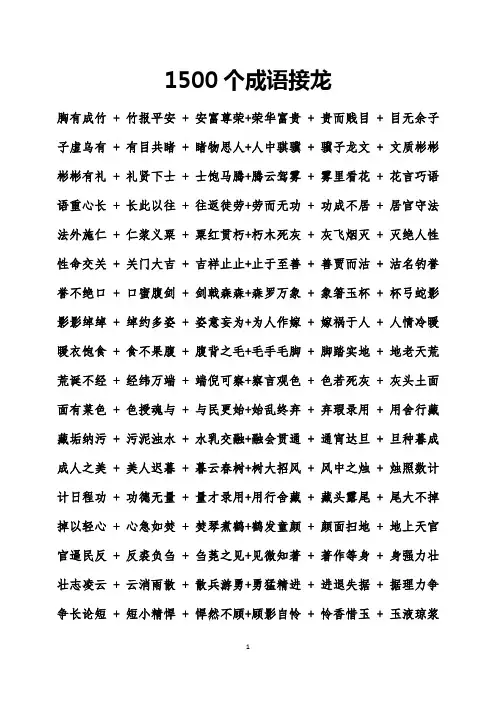 1500个成语接龙
胸有成竹 + 竹报平安 + 安富尊荣+荣华富贵 + 贵而贱目 + 目无余子
子虚乌有 + 有目共睹 + 睹物思人+人中骐骥 + 骥子龙文 + 文质彬彬
彬彬有礼 + 礼贤下士 + 士饱马腾+腾云驾雾 + 雾里看花 + 花言巧语
语重心长 + 长此以往 + 往返徒劳+劳而无功 + 功成不居 + 居官守法
法外施仁 + 仁浆义粟 + 粟红贯朽+朽木死灰 + 灰飞烟灭 + 灭绝人性
性命交关 + 关门大吉 + 吉祥止止+止于至善 + 善贾而沽 + 沽名钓誉
誉不绝口 + 口蜜腹剑 + 剑戟森森+森罗万象 + 象箸玉杯 + 杯弓蛇影
影影绰绰 + 绰约多姿 + 姿意妄为+为人作嫁 + 嫁祸于人 + 人情冷暖
暖衣饱食 + 食不果腹 + 腹背之毛+毛手毛脚 + 脚踏实地 + 地老天荒
荒诞不经 + 经纬万端 + 端倪可察+察言观色 + 色若死灰 + 灰头土面
面有菜色 + 色授魂与 + 与民更始+始乱终弃 + 弃瑕录用 + 用舍行藏
藏垢纳污 + 污泥浊水 + 水乳交融+融会贯通 + 通宵达旦 + 旦种暮成
成人之美 + 美人迟暮 + 暮云春树+树大招风 + 风中之烛 + 烛照数计
计日程功 + 功德无量 + 量才录用+用行舍藏 + 藏头露尾 + 尾大不掉
掉以轻心 + 心急如焚 + 焚琴煮鹤+鹤发童颜 + 颜面扫地 + 地上天官
官逼民反 + 反裘负刍 + 刍荛之见+见微知著 + 著作等身 + 身强力壮
壮志凌云 + 云消雨散 + 散兵游勇+勇猛精进 + 进退失据 + 据理力争
争长论短 + 短小精悍 + 悍然不顾+顾影自怜 + 怜香惜玉 + 玉液琼浆
1